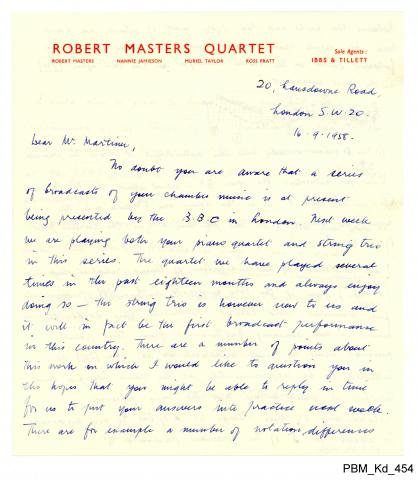 ROBERT MASTERS QUARTET
ROBERT MASTERS NANNIE JAMIESON MURIEL TAYLOR ROSS PRATT
Sole Agents :
IBBS & TILLETT
20, Lansdowne Road,
London S.W. 20.
16.9.1958.
Dear Mr. Martinu,
No doubt you are aware that a series
of broadcasts of your chamber music is at present
being presented by the B.B.C in London. Next week
we are playing both your piano quartet and string trio
in this series. The quartet we have played several
times in the past eighteen months and always enjoy
doing so – the string trio is however new to us and
it will in fact be the first broadcast performance
in this country. There are a number of points about
this work on which I would like to question you in
the hopes that you might be able to reply in time
for us to put your answers into practice next week.
There are for example a number of notation differences
PBM_Kd_454